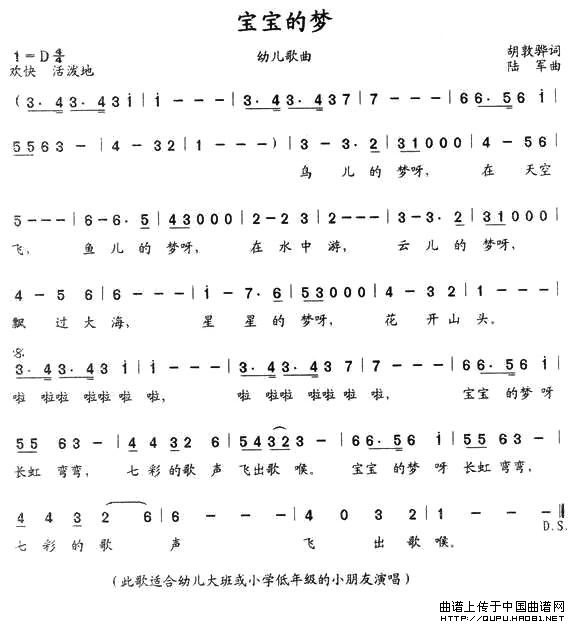 宝宝的梦
1=D 4/4
幼儿歌曲
胡敦骅词
欢快 活泼地
陆 军曲
(3·43·43i|i---|3·43·437|7---|66·56i|
5563-|4-32|1---)|3-3·2|31000|4-56|
鸟 儿的梦呀, 在 天空
5---|6-6·5|43000|2-23|2---|3-3·2|31000|
飞, 鱼儿的梦呀, 在水中游, 云儿的梦呀,
4-56|6---|i-7·6|53000|4-32|1---|
飘 过大海, 星 星的梦呀, 花 开山头。
3·43·43i|i---|3·43·437|7---|66·56i|
啦 啦啦 啦啦啦 啦, 啦 啦啦 啦啦啦 啦, 宝宝 的梦 呀
5563-|44326|54323-|66·56i|5563-|
长虹 弯弯, 七 彩的歌 声 飞出歌 喉。 宝宝 的梦 呀 长虹 弯弯,
44326|6---|4032|1---‖
D.S.
七 彩 的 歌 声 飞 出 歌 喉。
(此歌适合幼儿大班或小学低年级的小朋友演唱)
曲谱上传于中国曲谱网
HTTP://QUPU.HAO81.NET